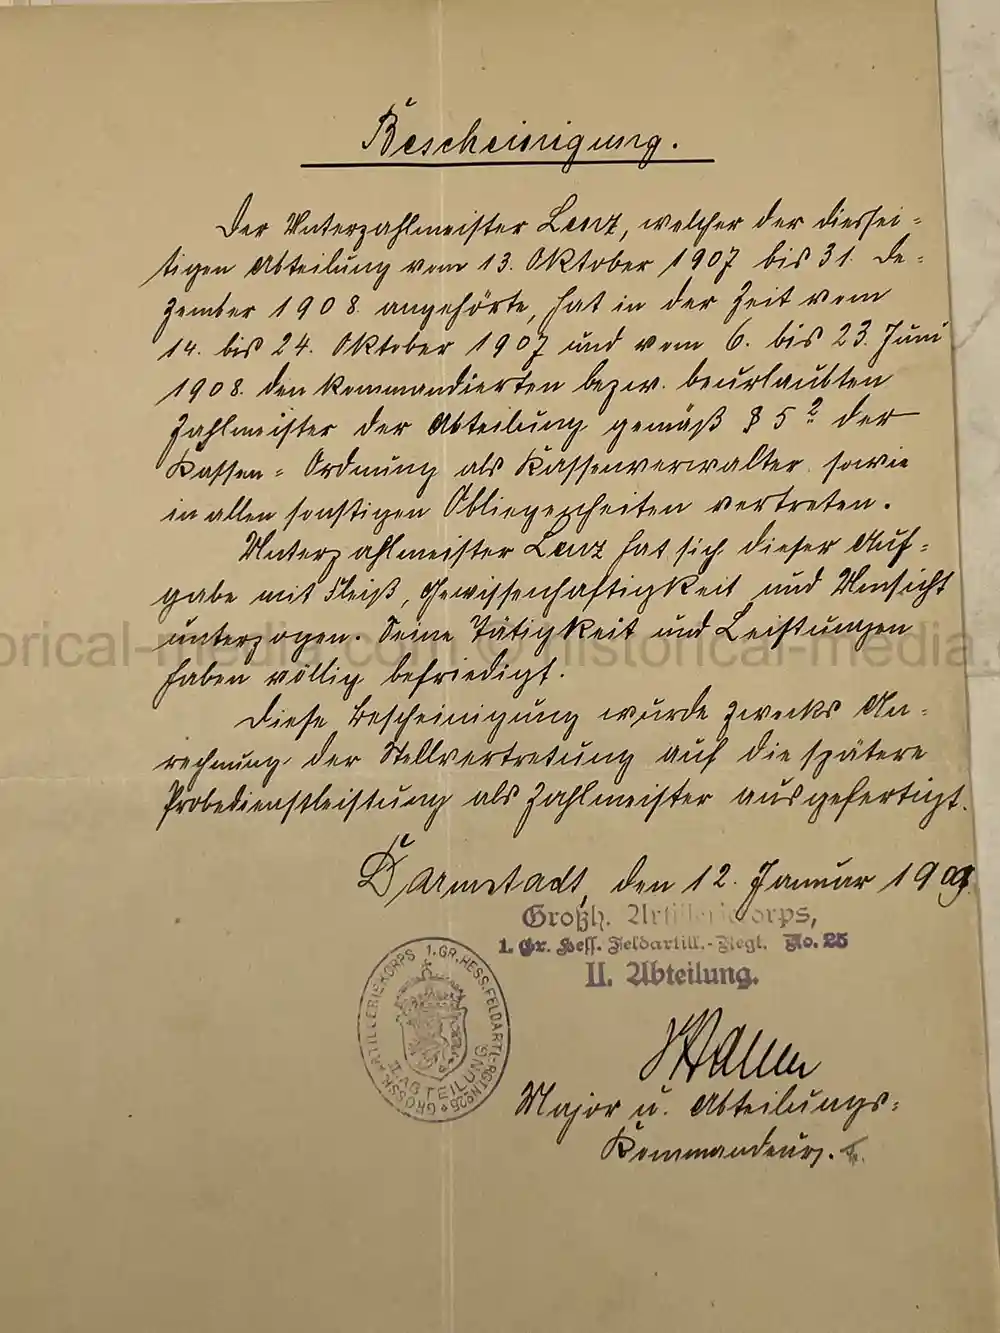 Bescheinigung.
Der Unterzahlmeister Lenz, welcher der diessei=
tigen Abteilung vom 13. Oktober 1907 bis 31. De=
zember 1908 angehörte, hat in der Zeit vom
14. bis 24. Oktober 1907 und vom 6. bis 23. Juni
1908 den kommandierten bezw. beurlaubten
Zahlmeister der Abteilung gemäß § 5² der
Kassen=Ordnung als Kassenverwalter sowie
in allen sonstigen Obliegenheiten vertreten.
Unterzahlmeister Lenz hat sich dieser Auf=
gabe mit Fleiß, Gewissenhaftigkeit und Umsicht
unterzogen. Seine Tätigkeit und Leistungen
haben völlig befriedigt.
Diese Bescheinigung wurde zwecks An=
rechnung der Stellvertretung auf die spätere
Probedienstleistung als Zahlmeister ausgefertigt.
Darmstadt, den 12. Januar 1909.
Großh. Artilleriecorps,
1. Gr. Hess. Feldartill.-Regt. No. 25
II. Abteilung.
GROSSH. ARTILLERIEKORPS 1.GR.HESS.FELDARTL-RGT.Nº25
II. ABTEILUNG
Major u. Abteilungs=
Kommandeur.
orical-media.com © historical-media.c